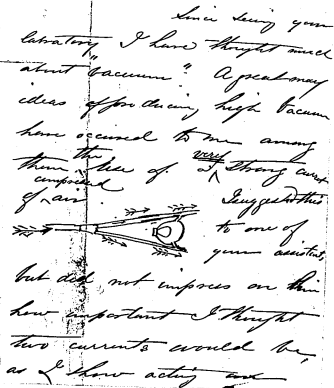 Since seeing your
labratory I have thought much
about "Vacuum". A great many
ideas of producing high Vacuum
have occured to me among
them the use of a very strong current
of compressed air I suggested this
to one of
your assistants
but did not impress on him
how important I thought
two currents would be,
as I show acting